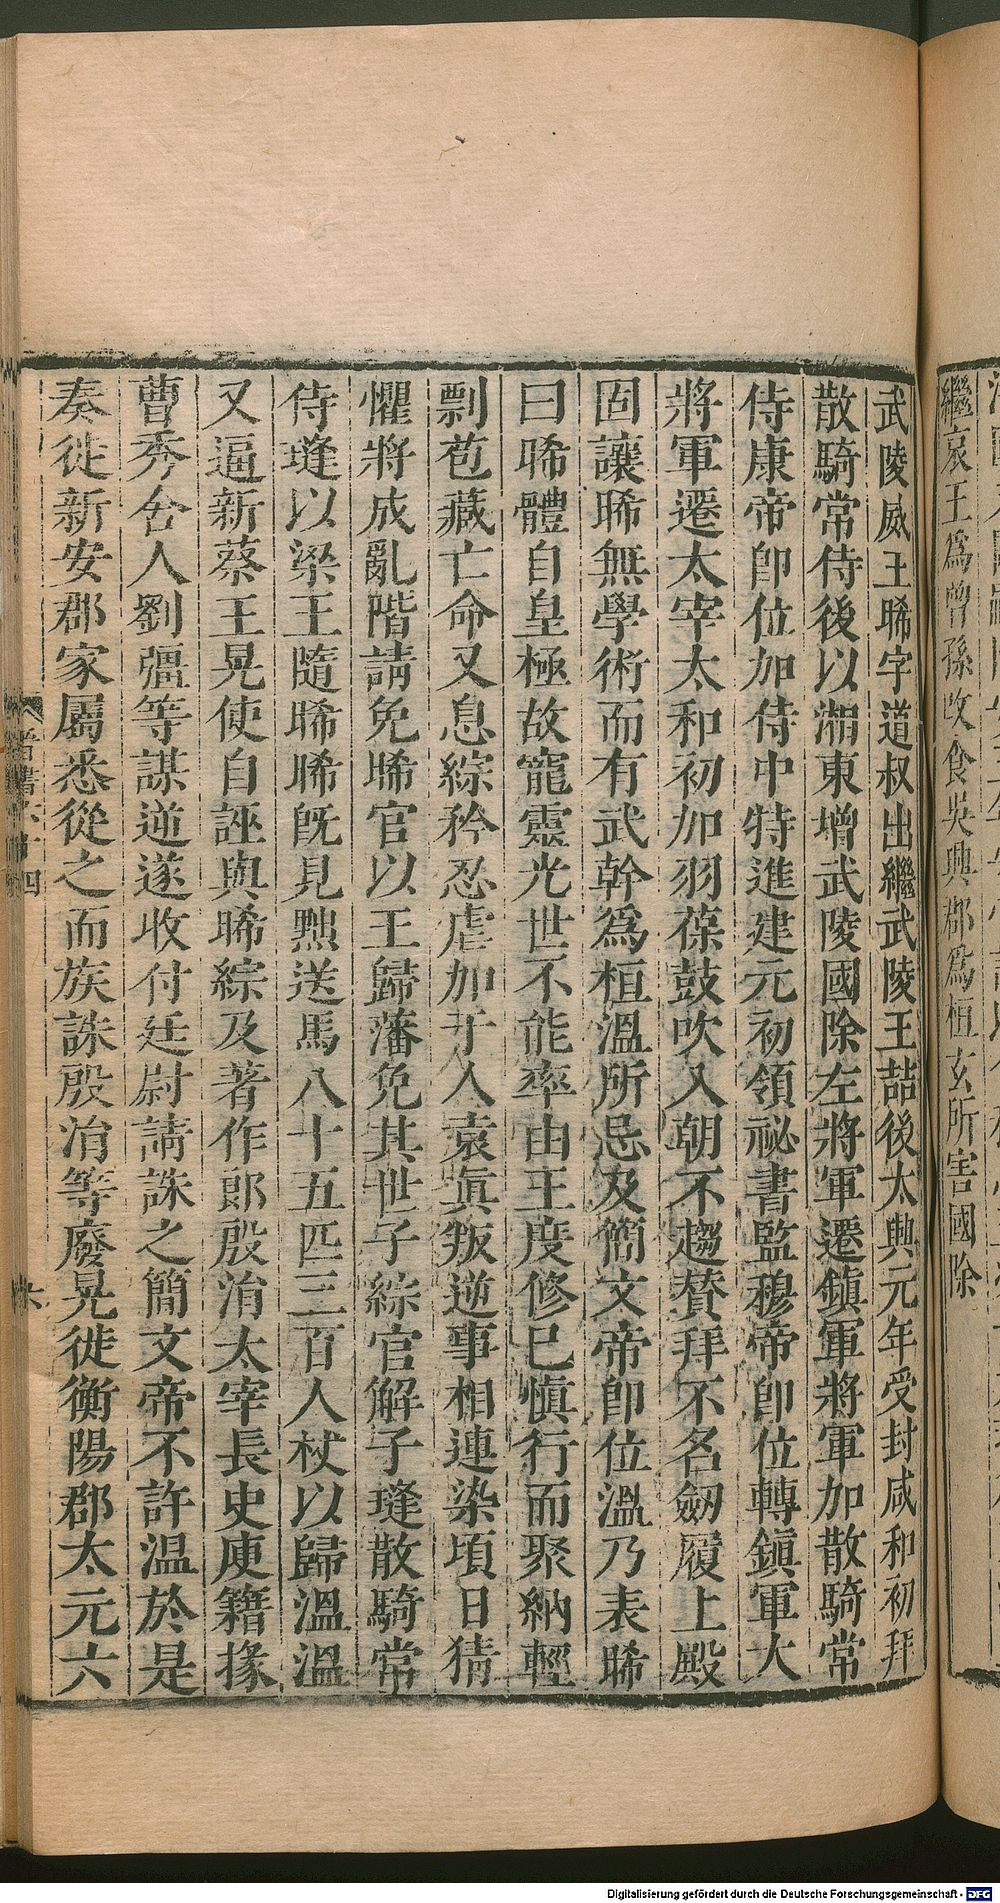 繼哀王爲曾孫改食吳興郡爲桓玄所害國除
武陵威王晞字道叔出繼武陵王喆後太興元年受封咸和初拜
散騎常侍後以湘東增武陵國除左將軍遷鎮軍將軍加散騎常
侍康帝卽位加侍中特進建元初領祕書監穆帝卽位轉鎮軍大
將軍遷太宰太和初加羽葆鼓吹入朝不趨贊拜不名劒履上殿
固讓晞無學術而有武幹爲桓溫所忌及簡文帝卽位溫乃表晞
曰晞體自皇極故寵靈光世不能率由王度修已愼行而聚納輕
剽苞藏亡命又息綜矜忍虐加于人袁眞叛逆事相連染頃日猜
懼將成亂階請免晞官以王歸藩免其世子綜官解子㻭散騎常
侍㻭以梁王隨晞晞旣見黜送馬八十五匹三百人杖以歸溫溫
又逼新蔡王晃使自誣與晞綜及著作郎殷涓太宰長史庾籍掾
曹秀舍人劉彊等謀逆遂收付廷尉請誅之簡文帝不許温於是
奏徙新安郡家屬悉從之而族誅殷涓等廢晃徙衡陽郡太元六
晉書六十四
Digitalisierung gefördert durch die Deutsche Forschungsgemeinschaft - DFG